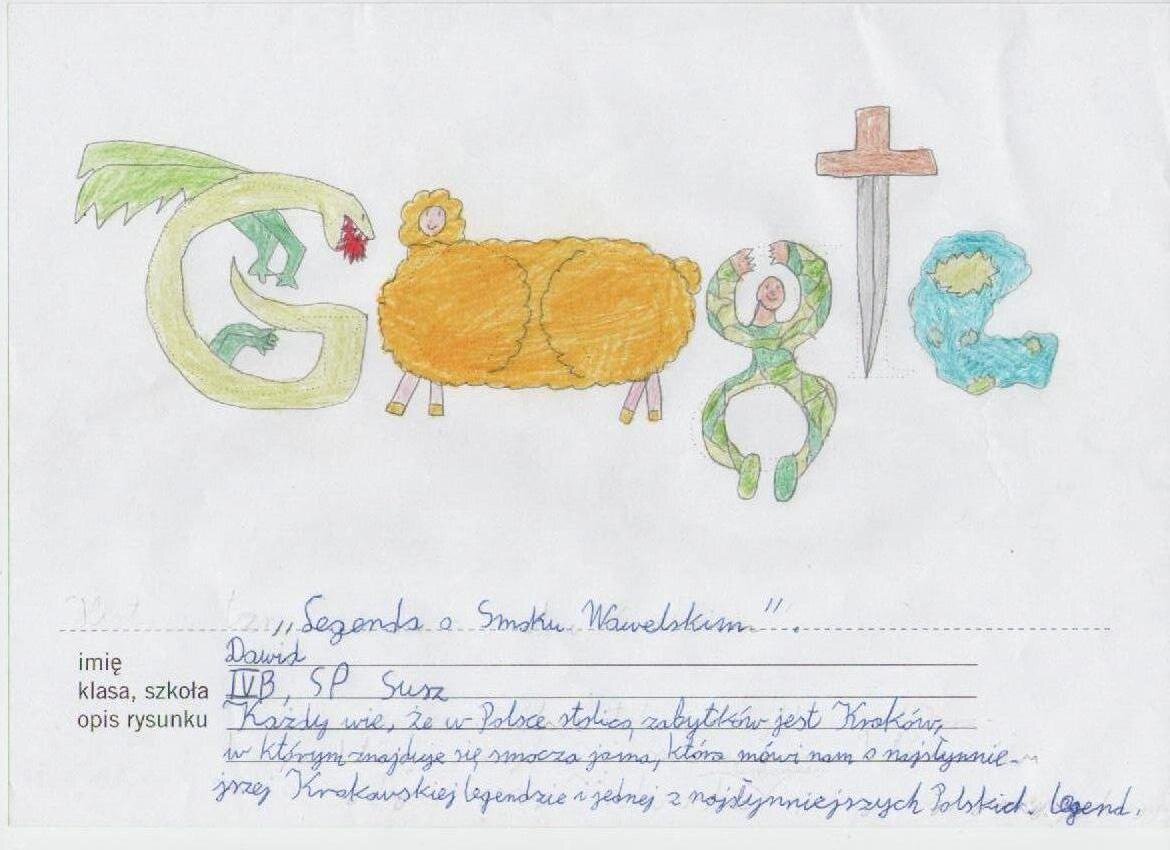 Google
„Legenda o Smoku Wawelskim”.
imię Dawid
klasa, szkoła IVB, SP Susz
opis rysunku Każdy wie, że w Polsce stolicą zabytków jest Kraków,
w którym znajduje się smocza jama, która mówi nam o najsłynnie-
jszej Krakowskiej legendzie i jednej z najsłynniejszych Polskich legend.